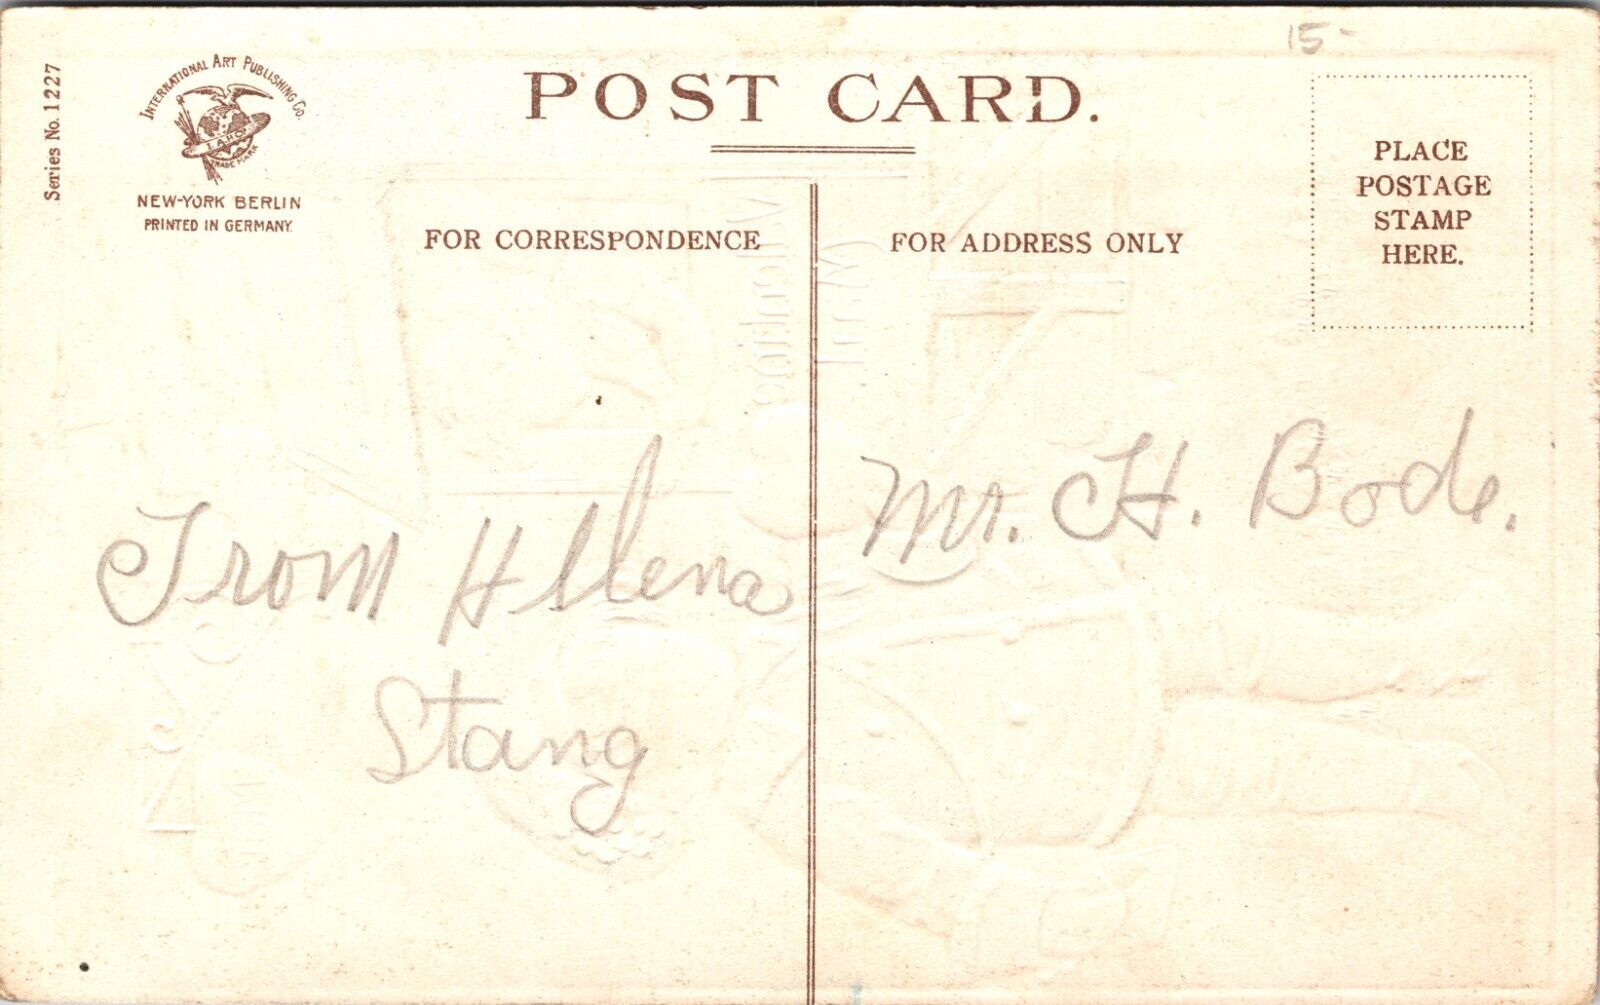 15-
Series No. 1227
INTERNATIONAL ART PUBLISHING Co.
I.A.P.Co.
TRADE MARK
NEW-YORK BERLIN
PRINTED IN GERMANY.
POST CARD.
PLACE
POSTAGE
STAMP
HERE.
FOR CORRESPONDENCE
FOR ADDRESS ONLY
From Hellena
Stang
Mr. H. Bode.